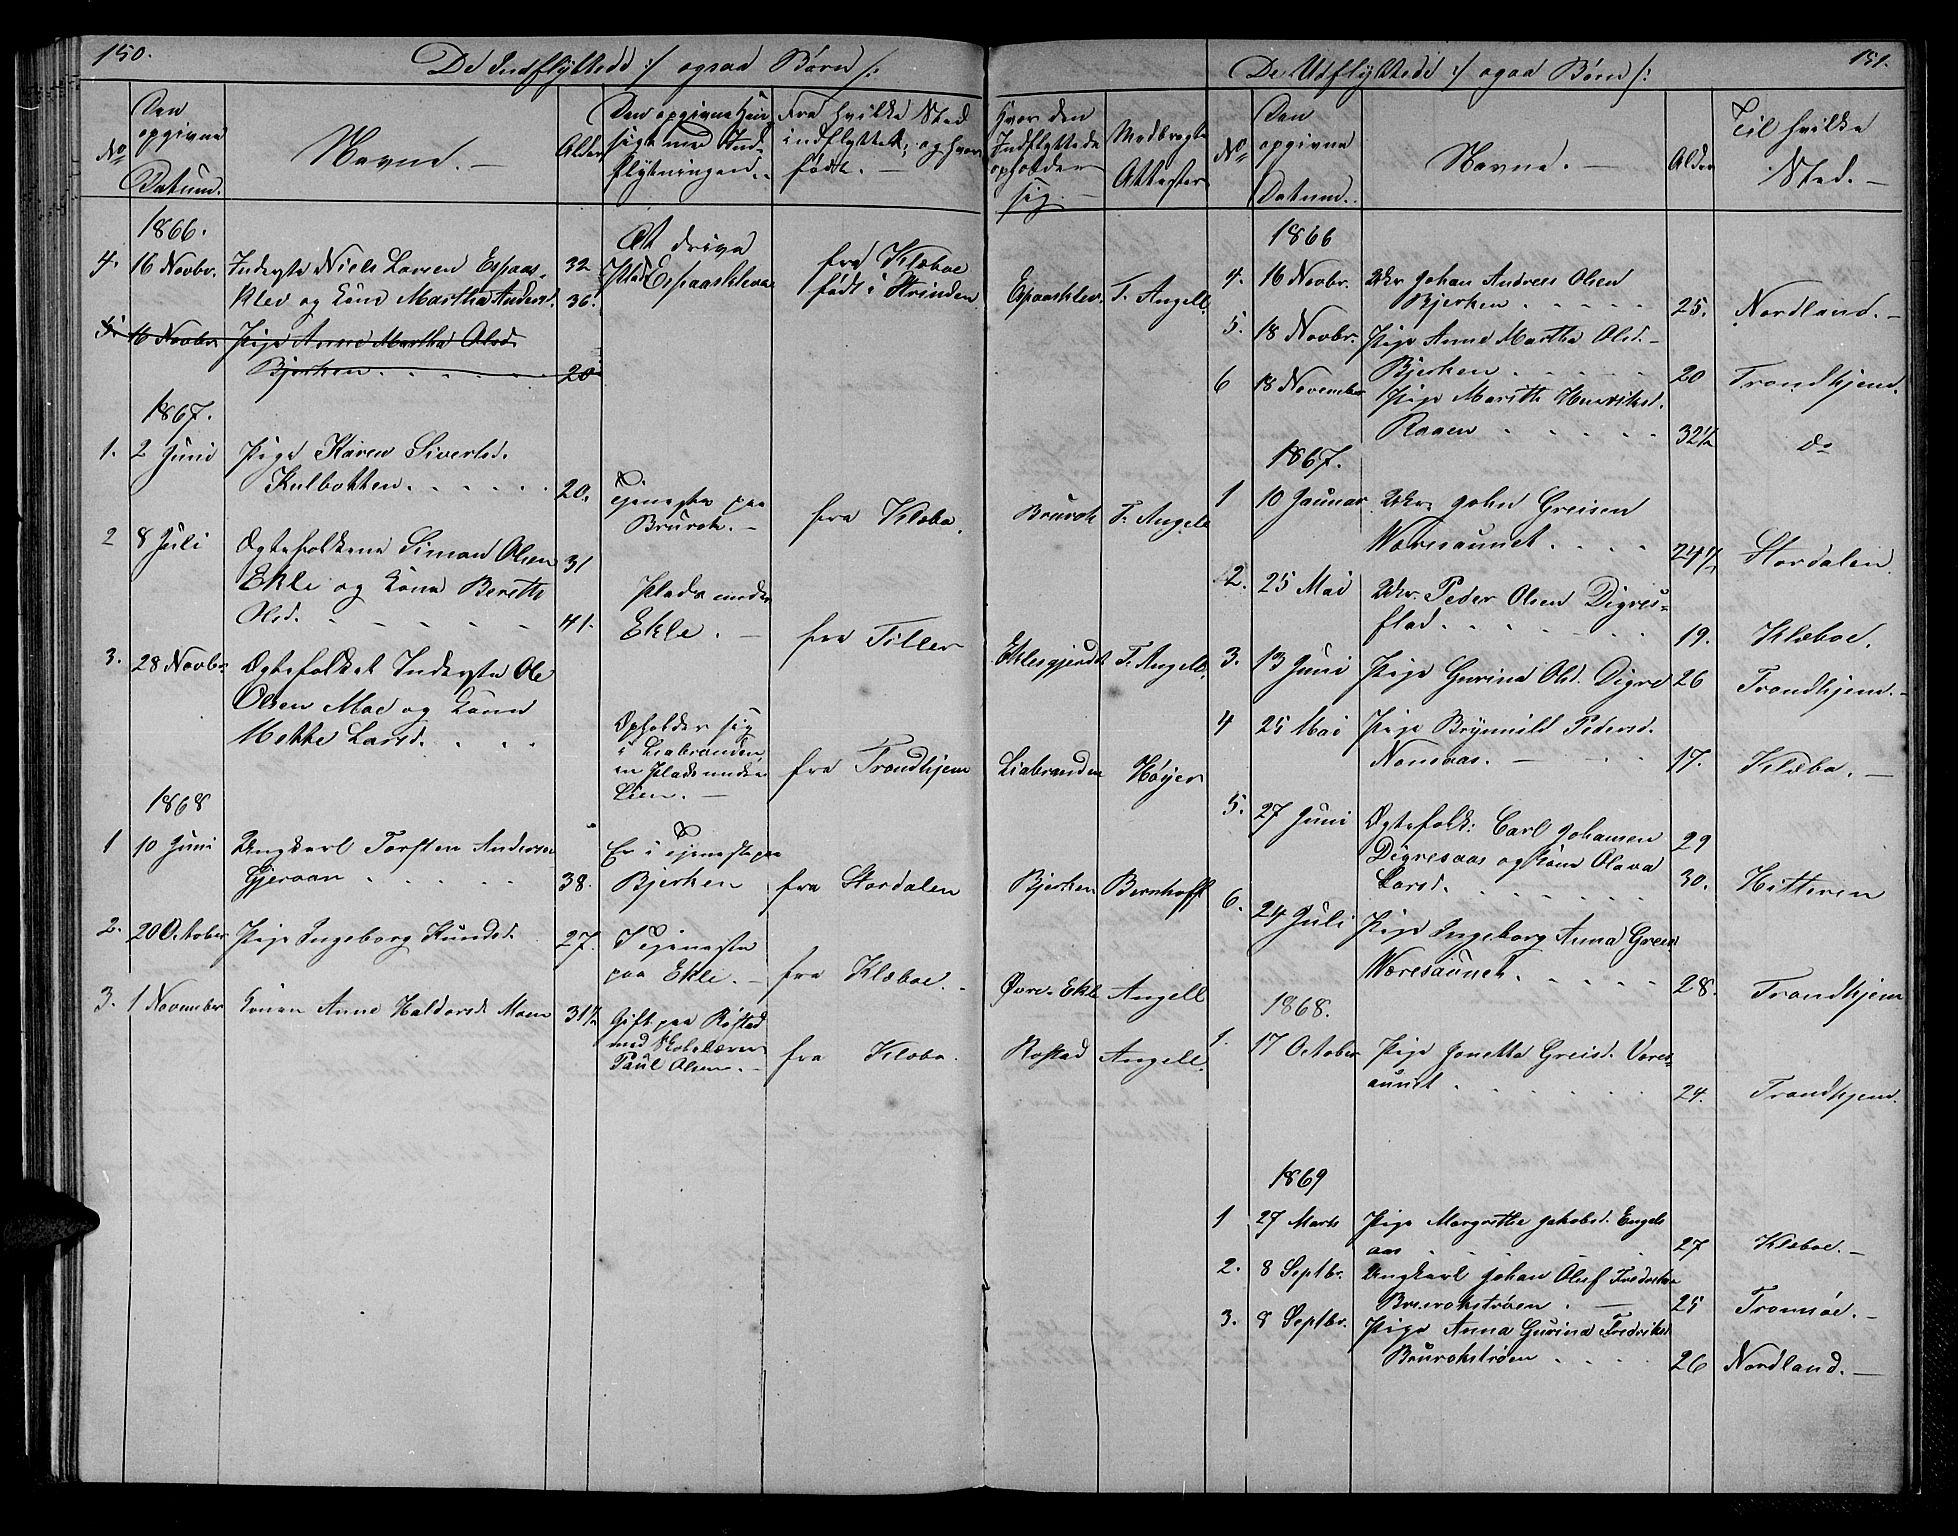 150.
De Indflyttede :/ ogsaa Børn /:
No
Den opgivne Datum.
Navne. —
Alder
Den opgivne Hensigt med Indflytningen. —
Fra hvilke Sted indflyttet, og hvor født. —
Hvor den Indflyttede opholder sig. —
Medbragte Attester
1866.
4. 16 Novbr. Inderste Niels Larsen Espaas- 32 At drive
klev og Kone Martha Andersd. 36. Plads Espaasklevan fra Klæboe født i Strinden Espaasklev. T. Angell.
5. 16 Novbr. Pige Anne Martha Olsd.
Bjerken . . . . . 20
1867.
1. 2 Juni Pige Karen Sivertsd.
Kulbotten . . . . . 20. Tjeneste paa Brurok. — fra Klæbo. Brurok T. Angell
2 8 Juli Egtefolkene Simon Olsen 31
Ekle og Kone Bereth
Olsd. - - - - - 41. Plads under Ekle. — fra Tiller Eklesgjerdt T. Angell.
3. 28 Novbr. Egtefolket Inderste Ole
Olsen Moe og Kone
Mette Larsd. . . . Opholder sig i Liabranden en Plads under Lien. — fra Trondhjem Liabranden Høyer
1868
1 10 Juni Ungkarl Torsten Andersen
Gjeraan . . . . . 38. Er i Tjeneste paa Bjerken fra Stordalen Bjerken Bernhoft
2. 20 October Pige Ingeborg Knudsd. 27. I Tjeneste
paa Ekle. — fra Klæboe. - Øvre Ekle Angell
3. 1 November Konen Anne Haldorsd. Moen 31½ Gift paa Rostad
med Skolelærer
Paul Olsen. — fra Klæbo. Rostad Angell.
151.
De Udflyttede :/ ogsaa Børn /:
No
Den opgivne Datum.
Navne. —
Alder
Til hvilke Sted. —
1866
4. 16 Novbr. Ukr Johan Andreas Olsen
Bjerken . . . . . 25. Nordland. —
5. 18 Novbr. Pige Anne Martha Olsd. —
Bjerken . . . . . 20 Trondhjem.
6 18 November Pige Marith Henriksd.
Raaen . . . . . 32½ do
1867.
1 10 Januar Ukr. John Greisen
Væresaunet . . . . 24½ Stordalen.
2. 25 Mai Ukr. Peder Olsen Digres-
flad. . . . . . 19. Klæboe.
3. 13 Juni Pige Gurina Olsd. Digre 26 Trondhjem. —
4 25 Mai Pige Brynnild Pedersd.
Nonsaas. — . . 17. Klæbo. —
5. 27 Juni Egtefolk: Carl Johansen 29
Digresaas og Kone Olava
Larsd. . . . . . 30. Hitteren
6. 24 Juli Pige Ingeborg Anna Greisd.
Væresaunet. . . . . 28. Trondhjem
1868.
1. 17 October Pige Jonetta Greisd. Væres-
aunet . . . . . 24. Trondhjem.
1869
1 27 Marts Pige Margrethe Jakobsd. Engels
aas . . . . . 27 Klæboe. —
2. 8 Septbr. Ungkarl Johan Oluf Fredriksen
Brurokstrøen . — 25 Tromsøe. —
3. 8 Septbr. Pige Anna Gurina Fredriksd
Brurokstrøen . . . . 26 Nordland. —